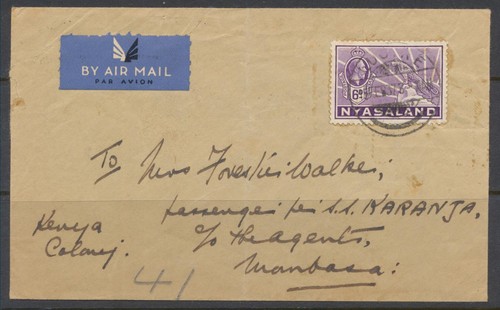 BY AIR MAIL
PAR AVION
6d
NYASALAND
To Mrs Forestier Walker,
passenger per s.s. KARANJA,
c/o The agents,
Mombasa:
Kenya
Colony.
41